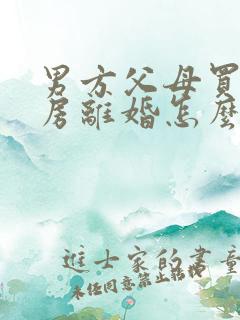 男方父母買
房離婚怎麼
進士家的書童
未經同意禁止轉換